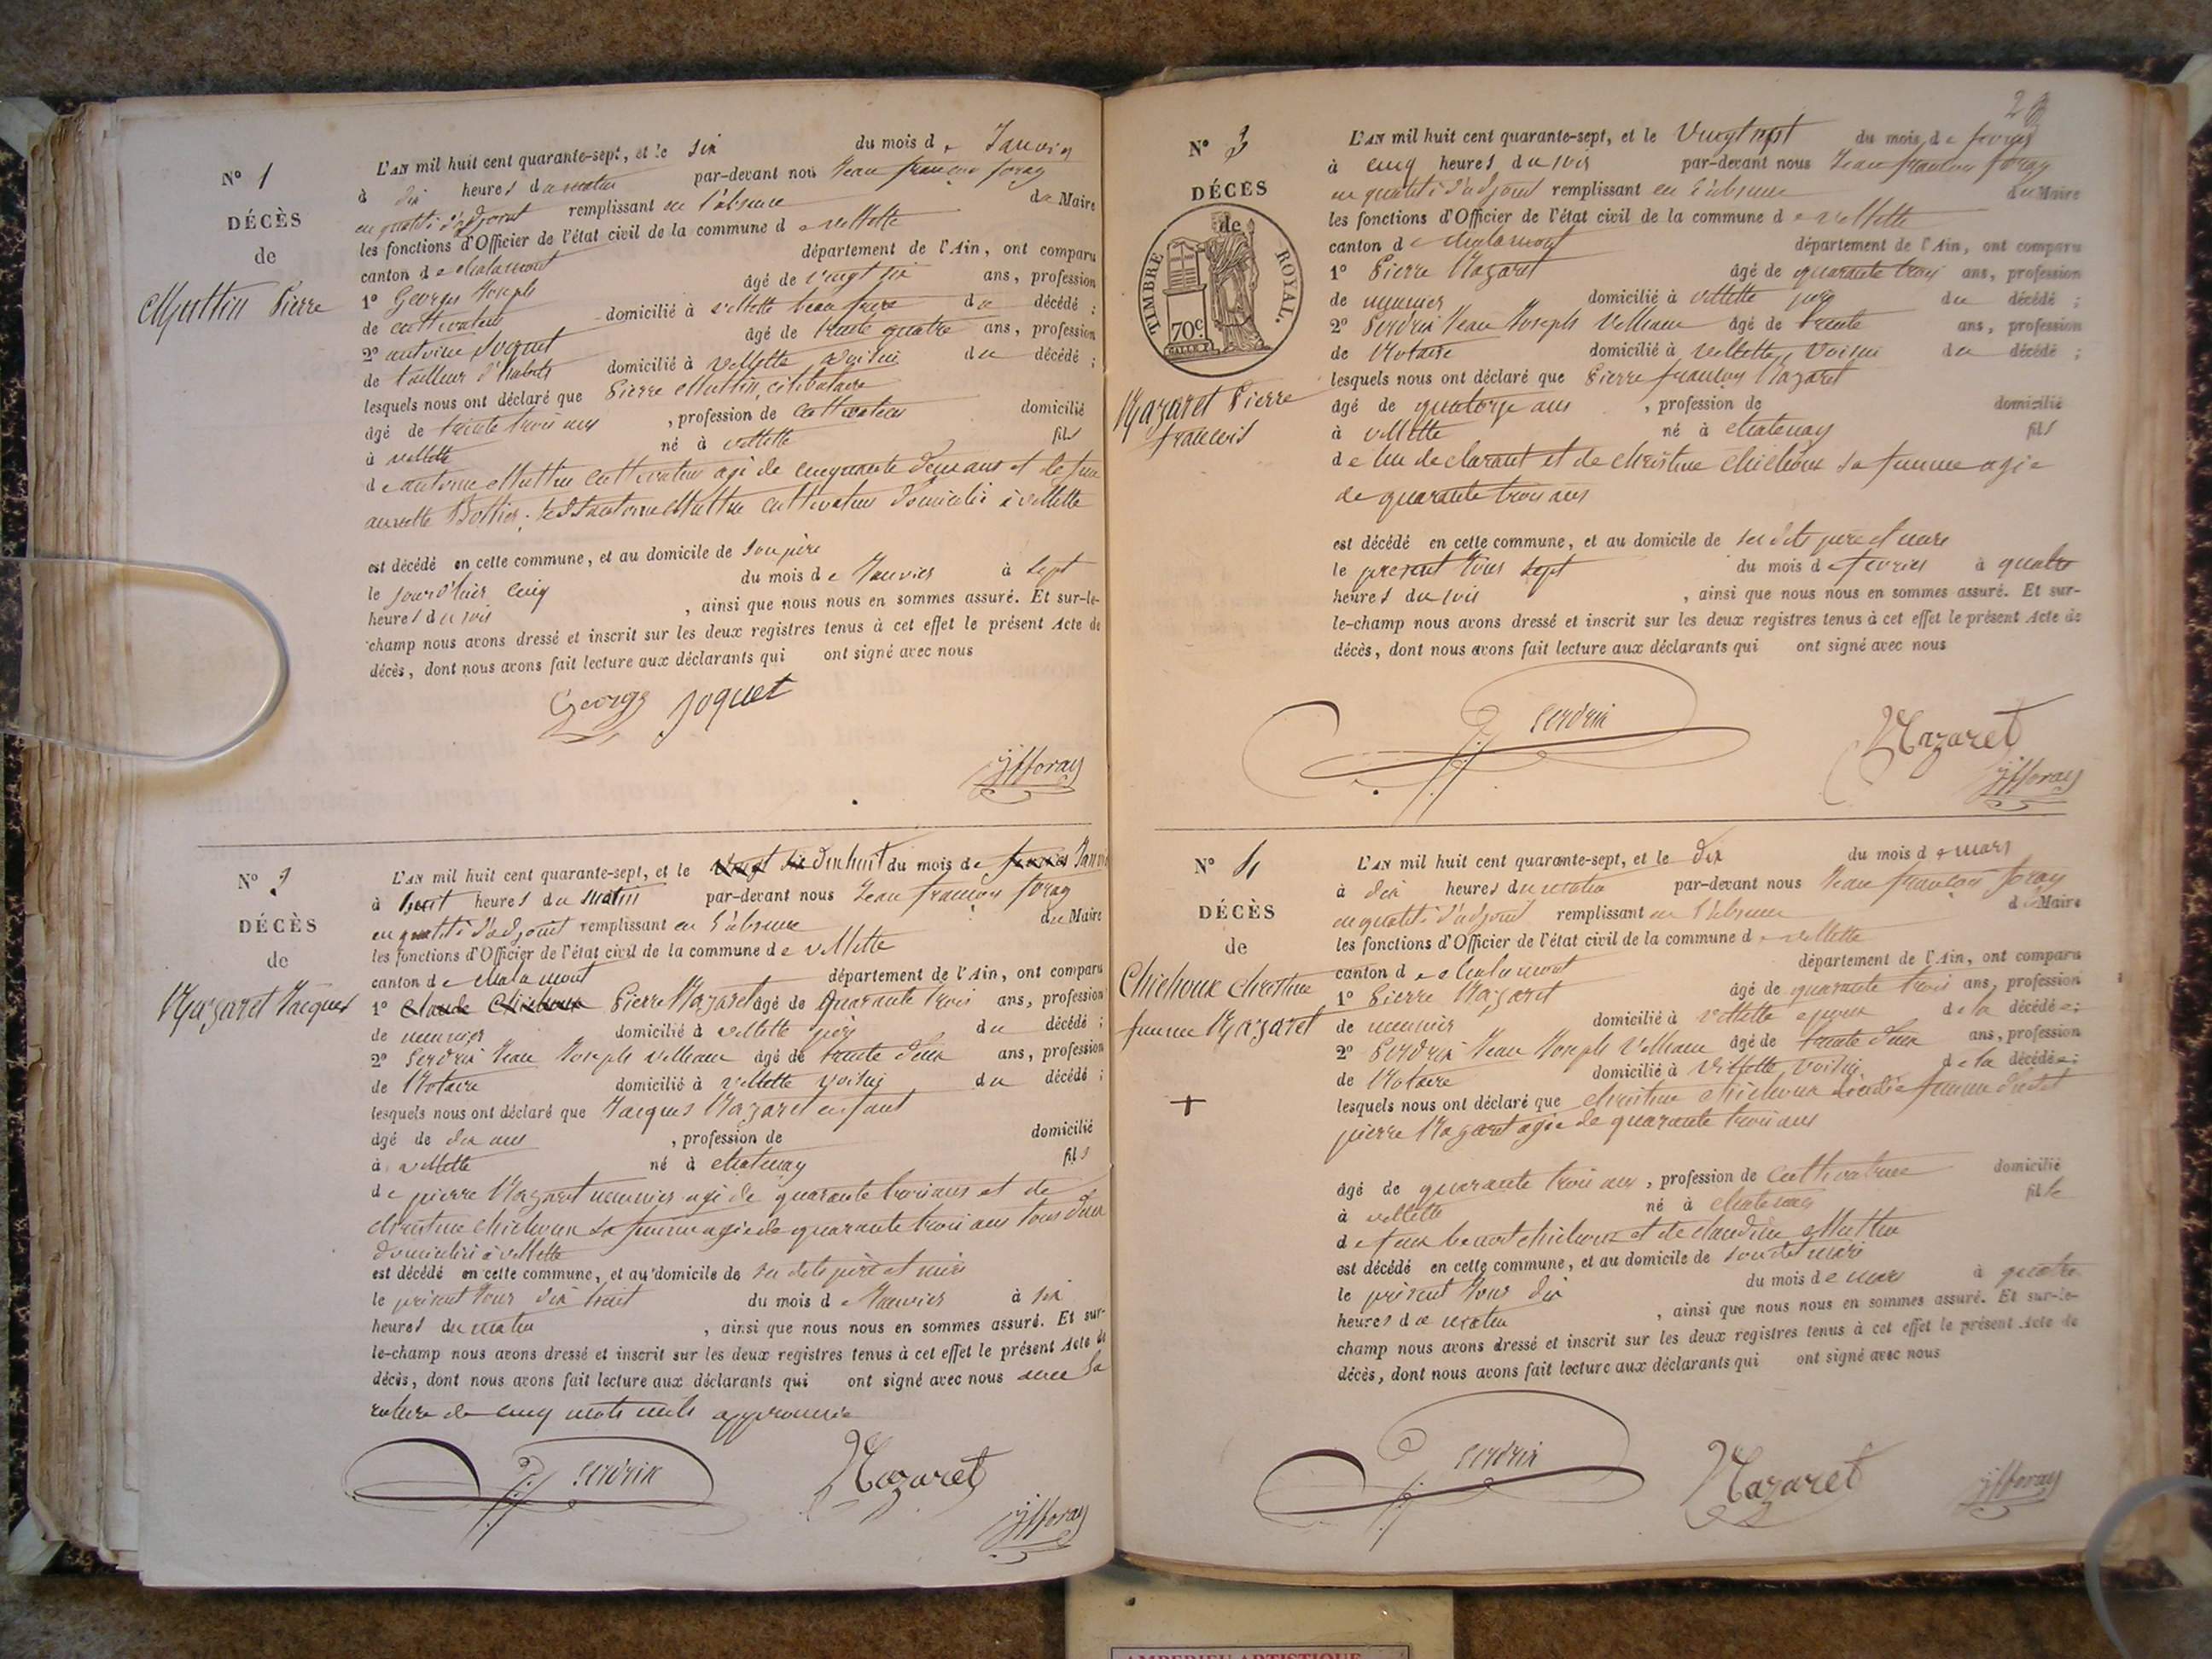 N° 1
DÉCÈS
de
Muttin Pierre
L'AN mil huit cent quarante-sept, et le six du mois de Janvier
à dix heures du matin par-devant nous Jean françois foray
en qualité d'adjoint remplissant en l'absence du Maire
les fonctions d'Officier de l'état civil de la commune de villette
canton de chalamont département de l'Ain, ont comparu
1° Georges Joseph âgé de vingt six ans, profession
de cultivateur domicilié à villette beau frere du décédé ;
2° antoine Joquet âgé de trente quatre ans, profession
de tailleur d'habits domicilié à villette voisin du décédé ;
lesquels nous ont déclaré que Pierre Muttin, célibataire
âgé de trente trois ans, profession de cultivateur domicilié
à villette né à villette fils
de antoine Muttin cultivateur agé de cinquante deux ans et de
Bottier antoine Muttin cultivateur domicilié à villette
est décédé en cette commune, et au domicile de son père
le jour d'hier cinq du mois de Janvier à sept
heures du soir, ainsi que nous nous en sommes assuré. Et sur-le-
champ nous avons dressé et inscrit sur les deux registres tenus à cet effet le présent Acte de
décès, dont nous avons fait lecture aux déclarants qui ont signé avec nous
George Joquet
jfforay
N° 2
DÉCÈS
de
Nazaret Jacques
L'AN mil huit cent quarante-sept, et le vingt six dix huit du mois de fevrier Janvier
à huit heures du matin par-devant nous Jean françois foray
en qualité d'adjoint remplissant en l'absence du Maire
les fonctions d'Officier de l'état civil de la commune de villette
canton de chalamont département de l'Ain, ont comparu
1° Claude Chichoux Pierre Nazaret âgé de quarante trois ans, profession
de meunier domicilié à villette père du décédé ;
2° Perdrix Jean Joseph Villeau âgé de trente deux ans, profession
de Notaire domicilié à villette voisin du décédé ;
lesquels nous ont déclaré que Jacques Nazaret enfant
âgé de dix ans, profession de domicilié
à villette né à chatenay fils
de pierre Nazaret meunier agé de quarante trois ans et de
christine chichoux sa femme agée de quarante trois ans tous deux
domiciliés à villette
est décédé en cette commune, et au domicile de ses dits père et mère
le présent jour dix huit du mois de Janvier à six
heures du matin, ainsi que nous nous en sommes assuré. Et sur-
le-champ nous avons dressé et inscrit sur les deux registres tenus à cet effet le présent Acte de
décès, dont nous avons fait lecture aux déclarants qui ont signé avec nous avec la
rature de cinq mots nuls approuvée
Perdrix Nazaret
jfforay
28
N° 3
DÉCÈS
de
TIMBRE ROYAL.
70c
Nazaret Pierre
francois
L'AN mil huit cent quarante-sept, et le vingt sept du mois de fevrier
à cinq heures du soir par-devant nous Jean françois foray
en qualité d'adjoint remplissant en l'absence du Maire
les fonctions d'Officier de l'état civil de la commune de villette
canton de chalamont département de l'Ain, ont comparu
1° Pierre Nazaret âgé de quarante trois ans, profession
de meunier domicilié à villette père du décédé ;
2° Perdrix Jean Joseph Villeau âgé de trente ans, profession
de Notaire domicilié à villette, voisin du décédé ;
lesquels nous ont déclaré que Pierre françois Nazaret
âgé de quatorze ans, profession de domicilié
à villette né à chatenay fils
de lui declarant et de christine chichoux sa femme agée
de quarante trois ans
est décédé en cette commune, et au domicile de ses dits père et mère
le present jour sept du mois de fevrier à quatre
heures du soir, ainsi que nous nous en sommes assuré. Et sur-
le-champ nous avons dressé et inscrit sur les deux registres tenus à cet effet le présent Acte de
décès, dont nous avons fait lecture aux déclarants qui ont signé avec nous
Perdrix Nazaret
jfforay
N° 4
DÉCÈS
de
Chichoux Christine
femme Nazaret
+
L'AN mil huit cent quarante-sept, et le dix du mois de mars
à dix heures du matin par-devant nous Jean françois foray
en qualité d'adjoint remplissant en l'absence du Maire
les fonctions d'Officier de l'état civil de la commune de villette
canton de chalamont département de l'Ain, ont comparu
1° Pierre Nazaret âgé de quarante trois ans, profession
de meunier domicilié à villette epoux de la décédée ;
2° Perdrix Jean Joseph Villeau âgé de trente deux ans, profession
de Notaire domicilié à villette voisin de la décédée ;
lesquels nous ont déclaré que christine chichoux décédée femme dudit
pierre Nazaret agée de quarante trois ans
âgé de quarante trois ans, profession de cultivatrice domicilié
à villette né à chatenay fille
de feux chichoux et de claudine Muttin
est décédé en cette commune, et au domicile de son dit mari
le présent jour dix du mois de mars à quatre
heures du matin, ainsi que nous nous en sommes assuré. Et sur-le-
champ nous avons dressé et inscrit sur les deux registres tenus à cet effet le présent Acte de
décès, dont nous avons fait lecture aux déclarants qui ont signé avec nous
Perdrix Nazaret jfforay
AMBERIEU ARTISTIQUE